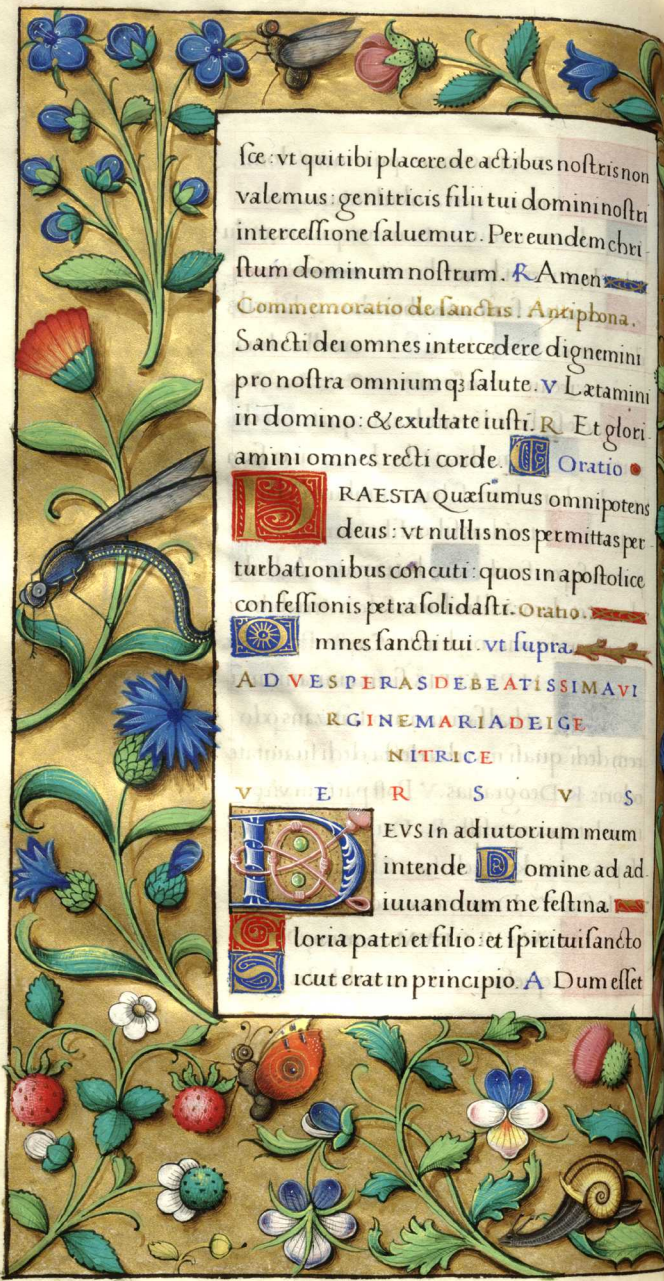 sce: vt qui tibi placere de actibus nostris non
valemus: genitricis filii tui domini nostri
intercessione saluemur. Per eundem chri
stum dominum nostrum. R Amen
Commemoratio de sanctis. Antiphona.
Sancti dei omnes intercedere dignemini
pro nostra omniumqꝫ salute. V Lætamini
in domino: & exultate iusti. R Et glori
amini omnes recti corde. C Oratio
PRAESTA Quæsumus omnipotens
deus: vt nullis nos permittas per
turbationibus concuti: quos in apostolice
confessionis petra solidasti. Oratio.
Omnes sancti tui. vt supra.
AD VESPERAS DE BEATISSIMA VI
RGINE MARIA DEI GE
NITRICE
VERSVS
DEVS In adiutorium meum
intende Domine ad ad
iuuandum me festina
Gloria patri et filio: et spiritui sancto
Sicut erat in principio. A Dum esset